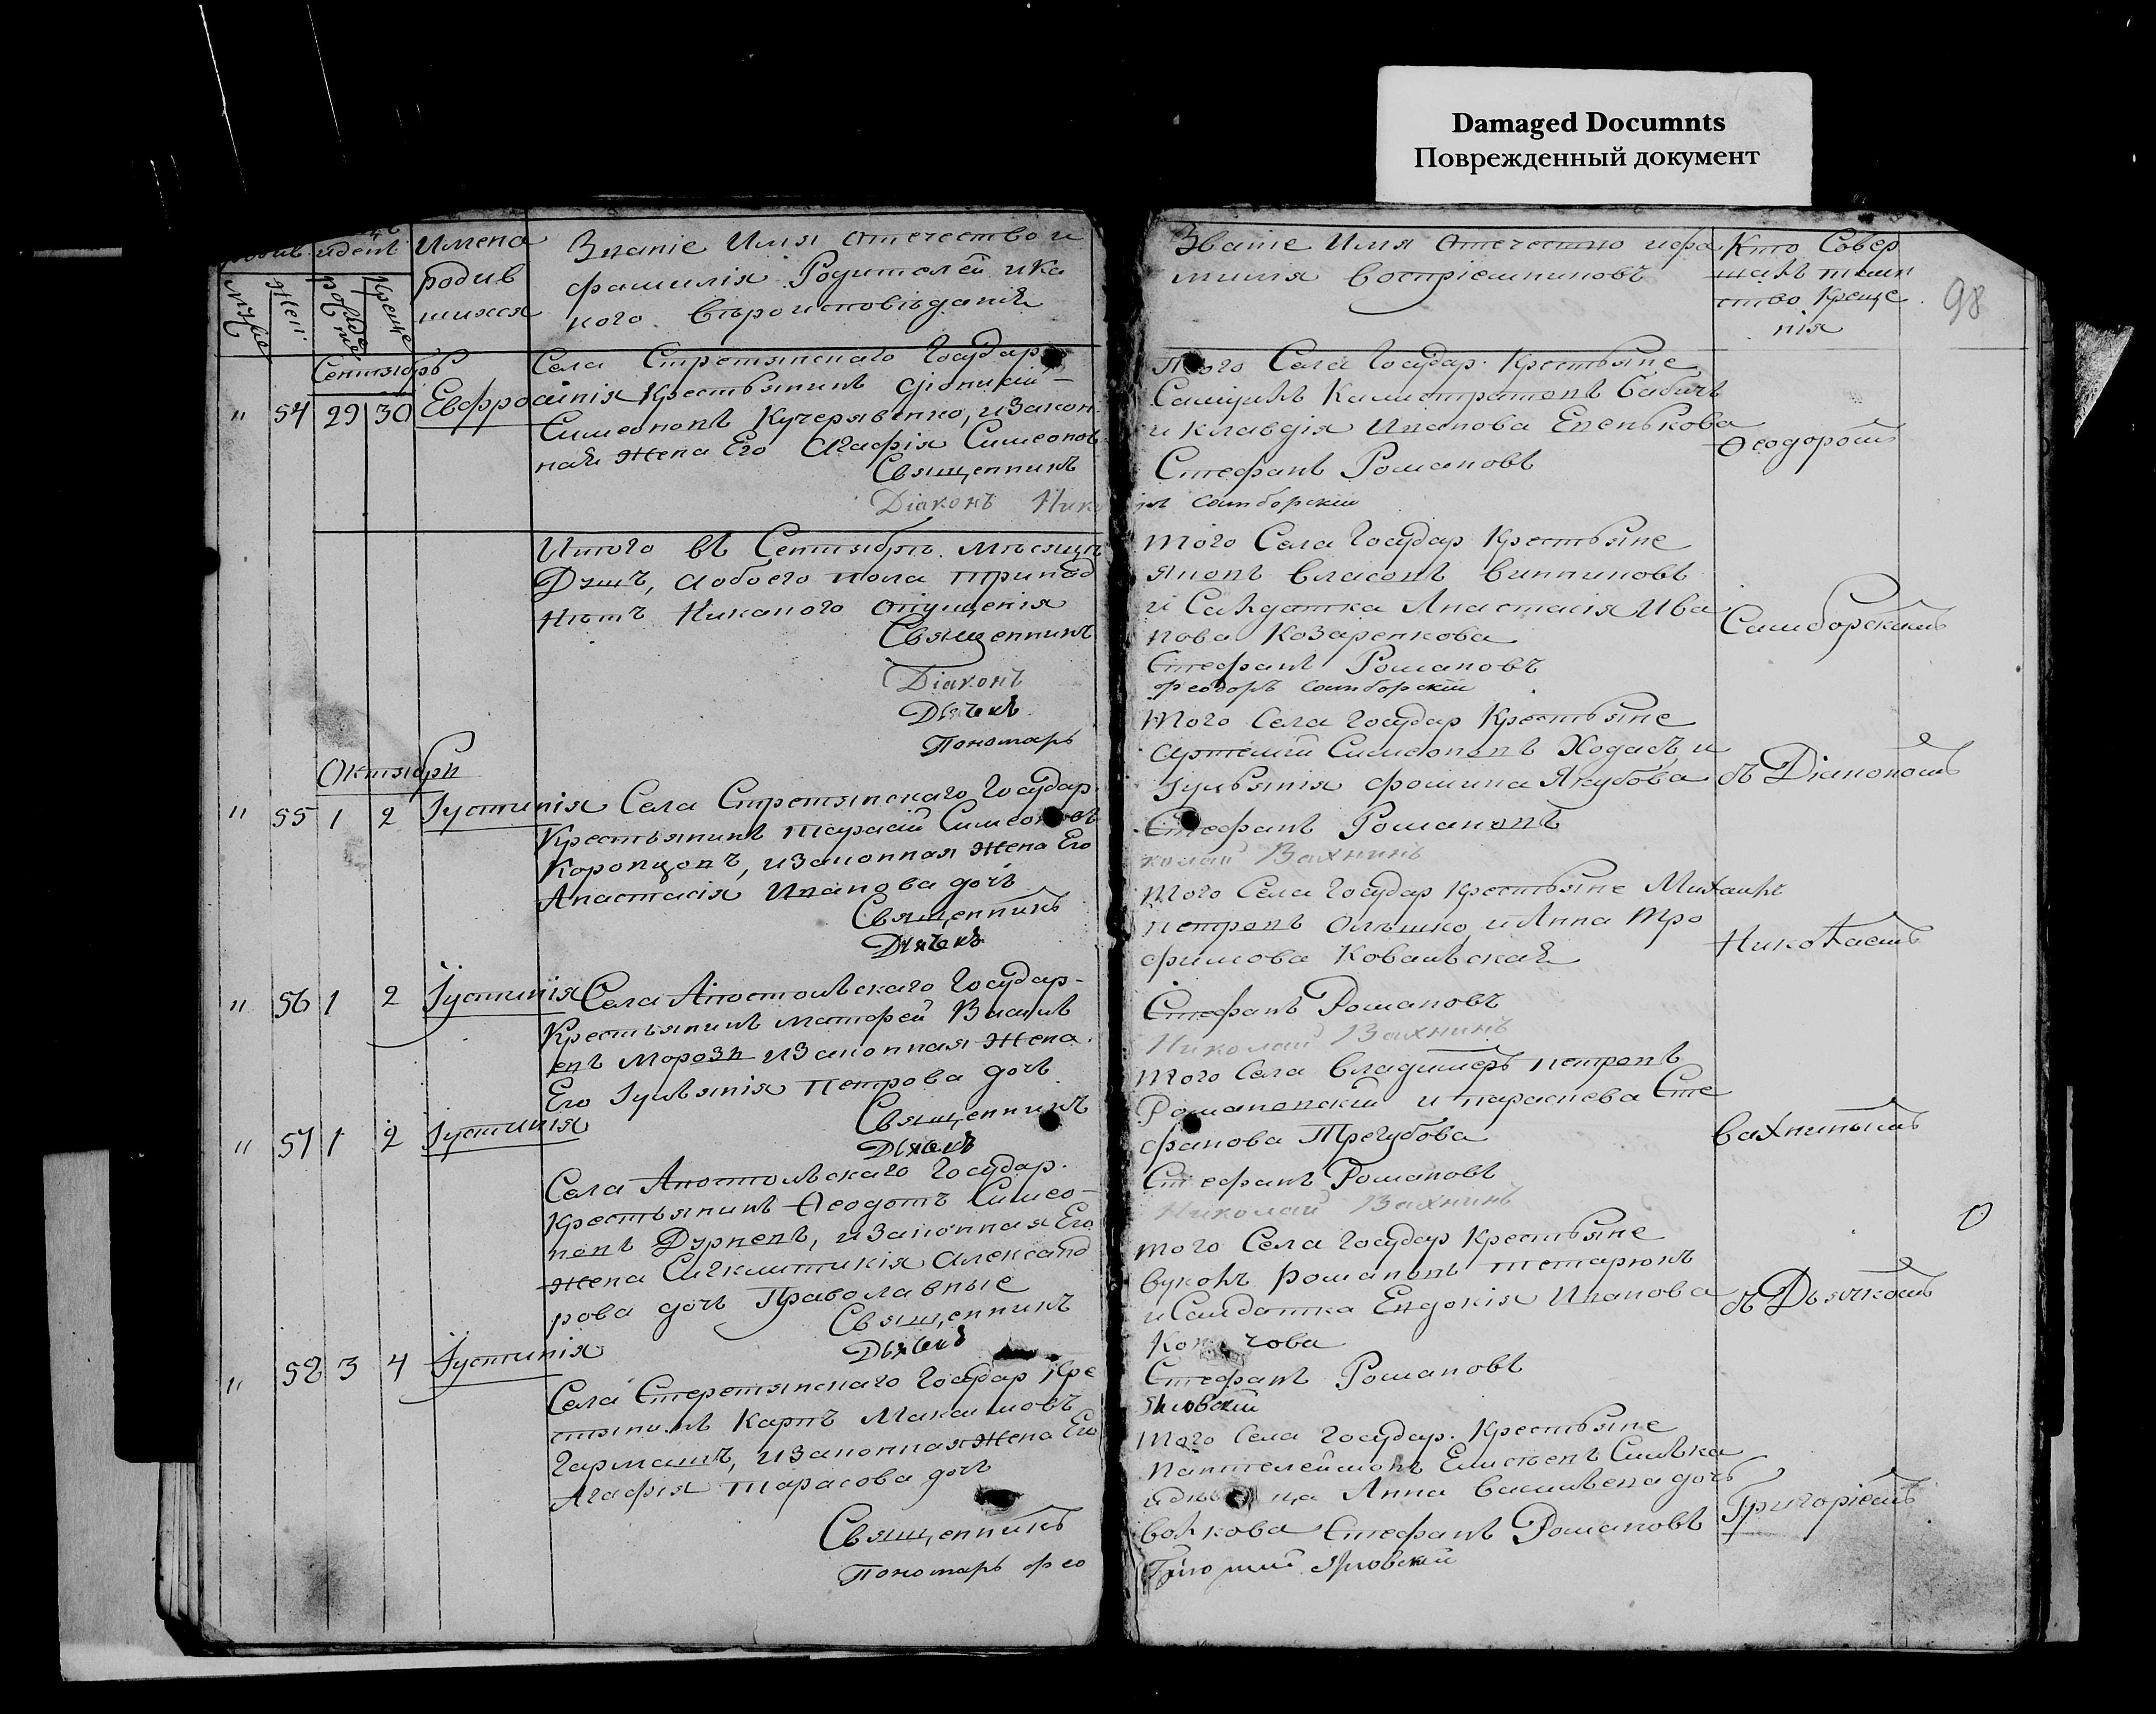 Damaged Documnts
Поврежденный документ
98
Имена
родив
шихся
Званіе Имя Отечество и
фамилія Родителей и ка
кого Вѣроисповѣданія
Сентябрь
" 54 29 30 Евфросинія
Села Стретянского Государ
Крестьянинъ
Симеоновъ Кучерявенко, и Закон
ная Жена Его Агафія Симеонов
Священникъ
Діаконъ
Итого въ Сентябрѣ Мѣсяцѣ
Душъ, Аобоего пола тринад
Нѣтъ Никакого Опущенія
Священникъ
Діаконъ
Дьячекъ
Пономарь
Октябрь
" 55 1 2 Іустинія
Села Стретянскаго Государ.
Крестьянинъ Тарасій Симеоновъ
, и Законная Жена Его
Анастасія Иванова дочь
Священникъ
Дьячекъ
" 56 1 2 Іустинія
Села Апостольскаго Государ-
Крестьянинъ Матфей Василь
евъ Морозъ и Законная Жена
Его Іульянія Петрова дочь
Священникъ
Дьячекъ
" 57 1 2 Іустинія
Села Апостольскаго Государ.
Крестьянинъ Ѳеодотъ Симео-
новъ Дурневъ, и Законная Его
Жена Александ
рова дочь Православные
Священникъ
Дьячекъ
" 52 3 4 Іустинія
Села Стеретянскаго Государ Кре
стянинъ Карпъ Максимовъ
Гармашъ, и Законная Жена Его
Агафія Тарасова дочь
Священникъ
Пономарь Фео
Званіе Имя Отечество и фа
милія Воспріемниковъ
Кто Совер
шалъ таин
ство Креще
нія
Того Села Государ. Крестьяне
Калистратовъ Бабичъ
и Клавдія Иванова Еленькова
Стефанъ Романовъ
Самборскій
Ѳеодоромъ
Того Села Государ Крестьяне
Власовъ Винниковъ
и Салдатка Анастасія Ива
нова Козаренкова
Стефанъ Романовъ
Феодоръ Самборскій
Самборскимъ
Того Села Государ Крестьяне
Артемій Симеоновъ Ходасъ, и
Іульянія Фомина Якубова
Стефанъ Романовъ
колай Вахнинъ
Діакономъ
Того Села Государ Крестьяне Михаилъ
Петровъ и Анна Тро
фимова Ковальская
Стефанъ Романовъ
Николай Вахнинъ
Николаемъ
Того Села Владимеръ Петровъ
Романовскій и Параскева Сте
фанова Трегубова
Стефанъ Романовъ
Николай Вахнинъ
Вахнинымъ
0
Того Села Государ Крестьяне
Романовъ Тетарюкъ
и Салдатка Евдокія Иванова
Стефанъ Романовъ
съ Дьячкомъ
Того Села Государ. Крестьяне
Пантелеймонъ
Анна Васильева дочь
Волкова Стефанъ Романовъ
Григоріемъ